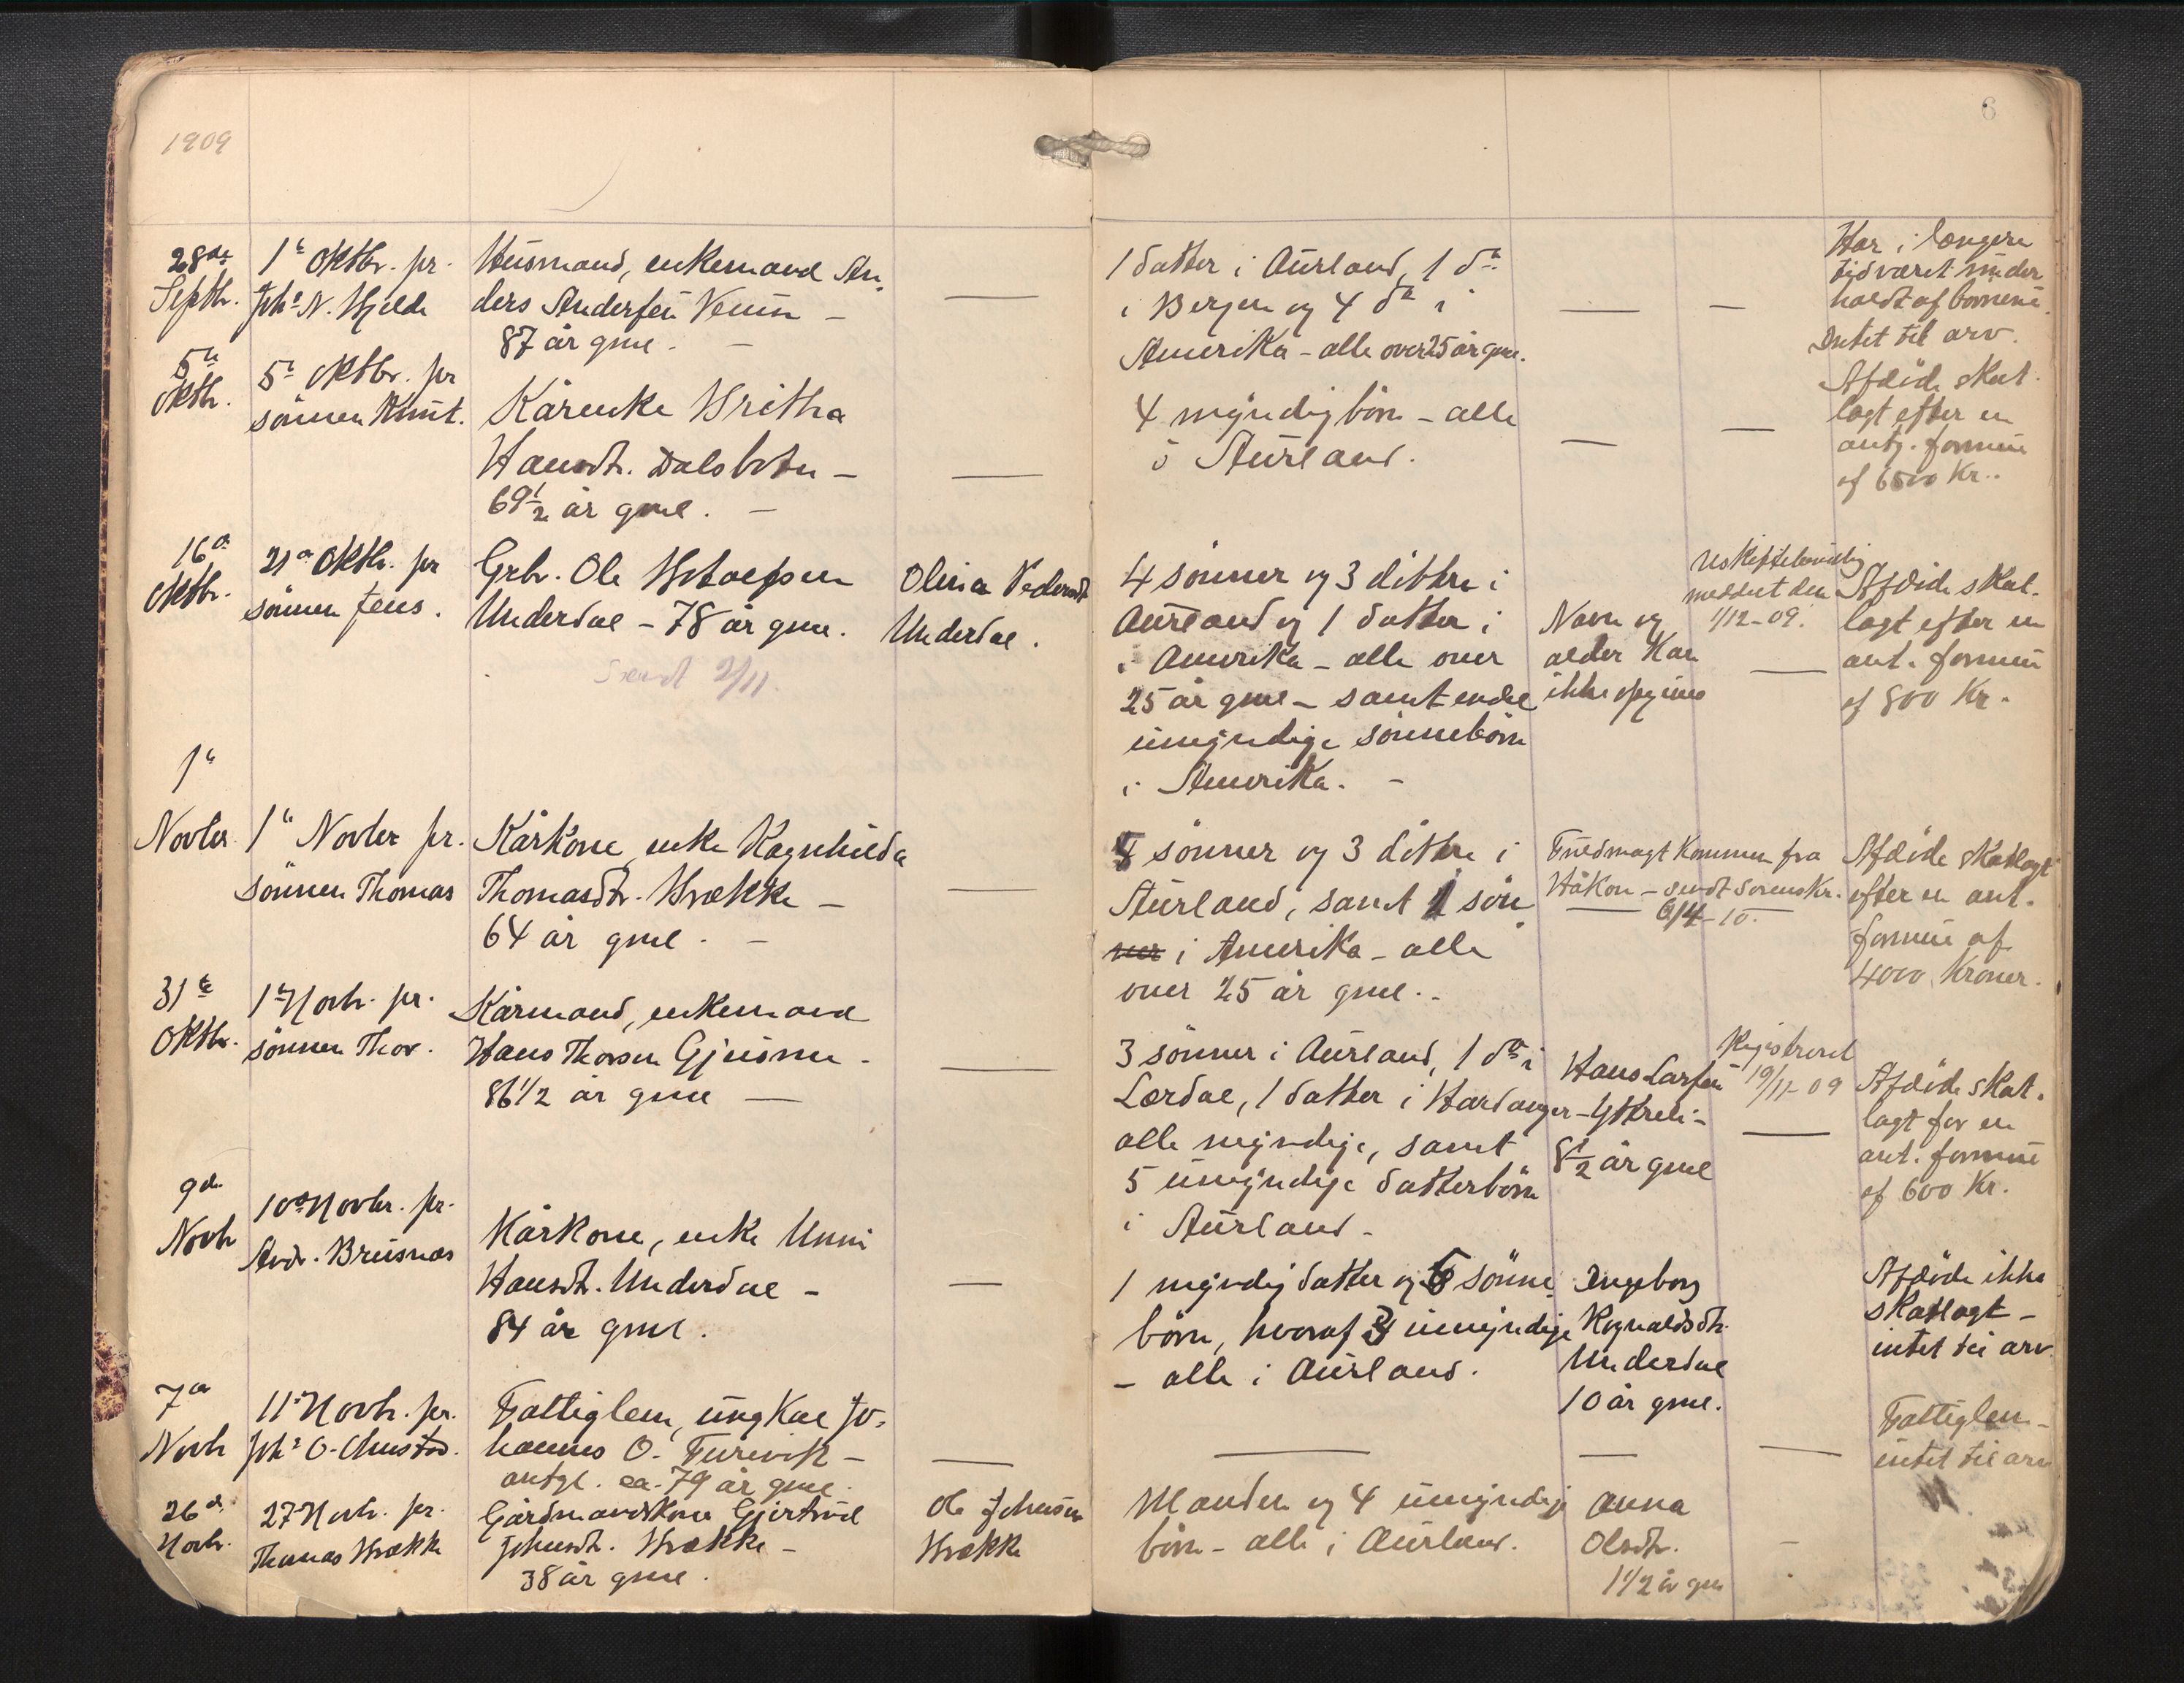 1909
6
28de
Septbr.
1ste Oktbr. pr.
Johs N. Hjelde
Husmand, enkemand An-
ders Andersen
87 år gml.
1 datter i Aurland, 1 do
i Bergen og 4 do i
Amerika - alle over 25 år gml.
Har i længere
tid været under
holdt af børnene.
Intet til arv.
5te
Oktbr.
5te Oktbr. pr
sønnen Knut.
Kårenke Britha
Hansdtr. Dalsbotn -
69 1/2 år gml. -
4 myndig børn - alle
i Aurland.
Afdøde skat-
lagt efter en
antg. formue
af 6500 Kr..
16de
Oktbr.
21de Oktbr. pr
sønnen Jens.
Grbr. Ole Botolfsen
Underdal - 78 år gml.
Sendt 2/11.
Olina Pedersdt
Underdal.
4 sønner og 3 døttre i
Aurland og 1 datter i
i Amerika - alle over
25 år gml - samt endel
umyndige sønnebørn
i Amerika. -
Navn og
alder kan
ikke opgives
Uskiftebevilling
meddelt den
1/12-09.
Afdøde skat-
lagt efter en
ant. formue
af 800 Kr.
1ste
Novbr.
1ste Novbr pr.
sønnen Thomas
Kårkone, enke Ragnhilda
Thomasdtr. Brække -
64 år gml. -
sønner og 3 døttre i
Aurland, samt 1 søn
ner i Amerika - alle
over 25 år gml.
Fuldmagt kommen fra
Håkon - sendt sorenskr.
6/4-10.
Afdøde skatlagt
efter en ant.
formue af
4000 Kroner.
31te
Oktbr.
1ste Novbr. pr.
sønnen Thor.
Kårmand, enkemand
Hans Thorsen Gjeisme -
86 1/2 år gml -
3 sønner i Aurland, 1 do i
Lærdal, 1 datter i Hardanger -
alle myndige, samt
5 umyndige datterbørn
i Aurland -
Hans Larsen
Ytreli -
8 1/2 år gml
Registreret
19/11-09
Afdøde skat-
lagt for en
ant. formue
af 600 Kr.
9de
Novbr
10de Novbr. pr.
Andr. Brusnæs
Kårkone, enke Unni
Hansdt. Underdal -
84 år gml.
1 myndig datter og 6 sønne
børn, hvoraf 3 umyndige
- alle i Aurland.
Ingeborg
Rognaldsdtr.
Underdal
10 år gml.
Afdøde ikke
skatlagt -
intet til arv.
7de
Novbr
11te Novbr. pr.
Johs O. Onstad.
Fattiglem, ungkar Jo-
hannes O. Turevik -
antgl. ca. 79 år gml.
Fattiglem -
intet til arv
26de
Novbr.
27 Novbr. pr.
Thomas Brække
Gårdmandskone Gjertrud
Johnsdt. Brække -
38 år gml.
Ole Johnsen
Brække
Manden og 4 umyndige
børn - alle i Aurland.
Anna
Olsdtr.
1 1/2 år gml